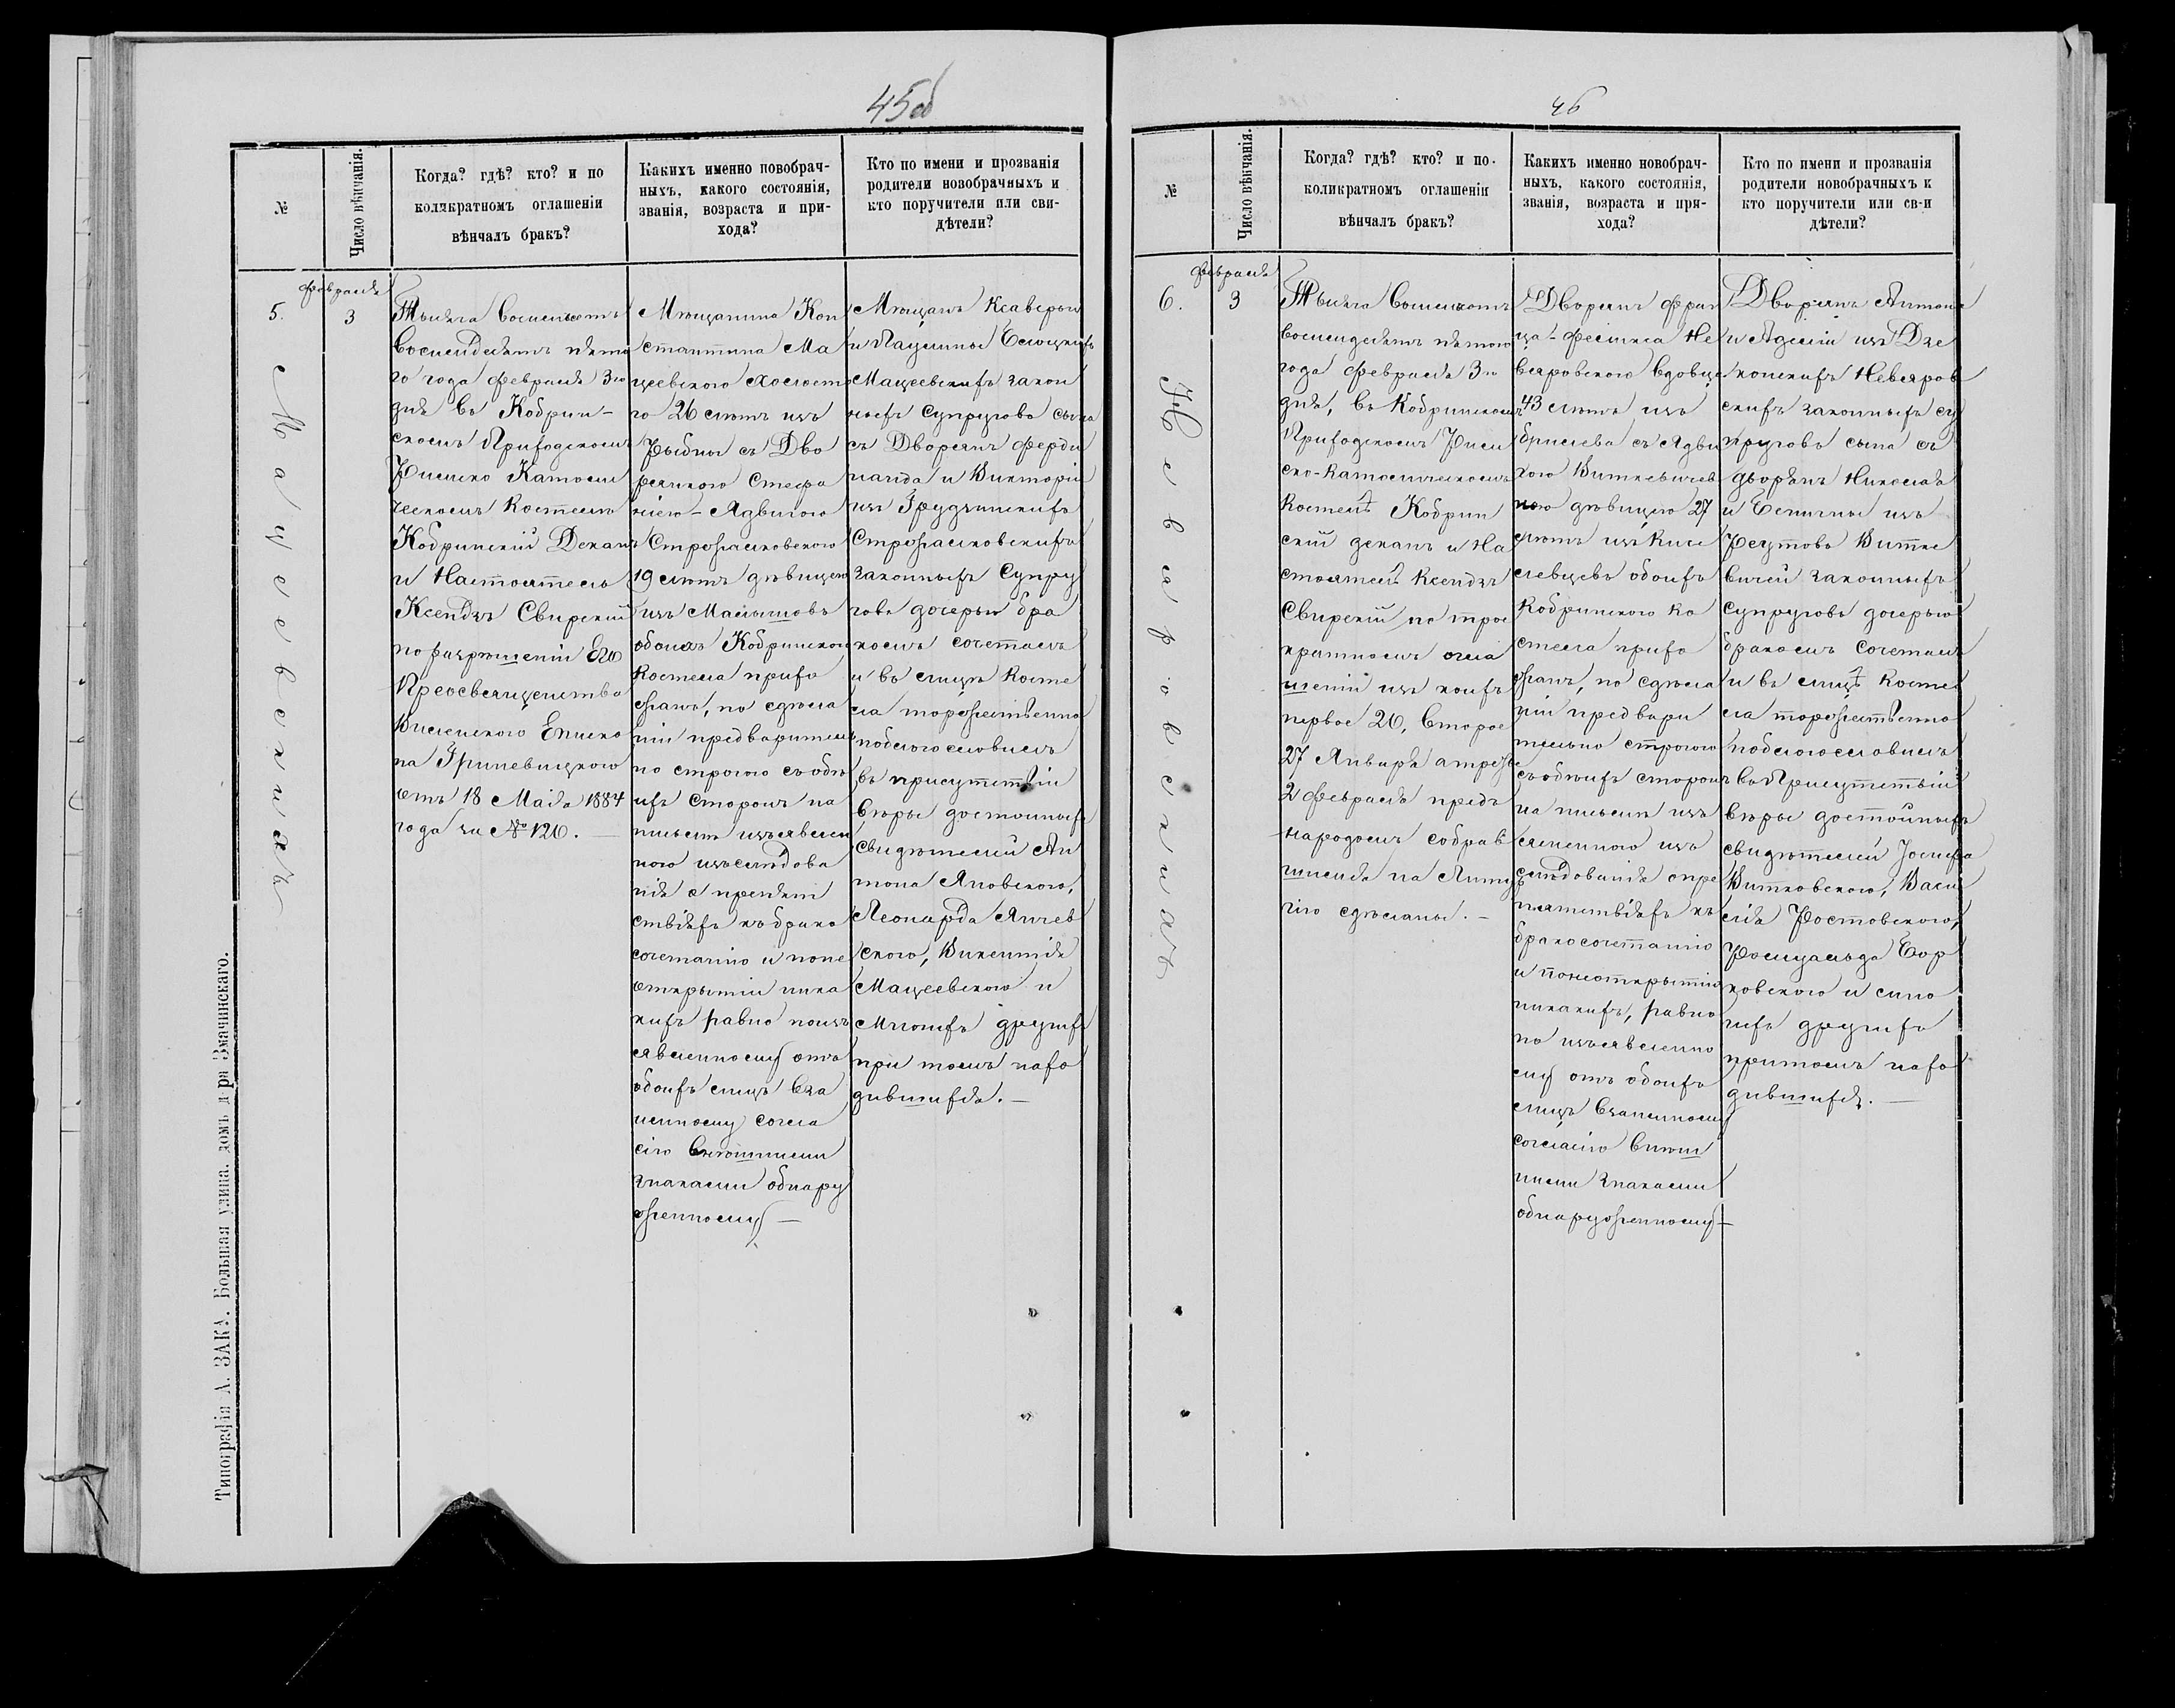 45об
№
Число вѣнчанія.
Когда? гдѣ? кто? и по
коликратномъ оглашеніи
вѣнчалъ бракъ?
Какихъ именно новобрач-
ныхъ, какого состоянія,
званія, возраста и при-
хода?
Кто по имени и прозванія
родители новобрачныхъ и
кто поручители или сви-
дѣтели?
февраля
5.
3
Мацеевскихъ
Тысяча восемьсотъ
восемьдесятъ пята
го года февраля 3го
дня въ Кобрин-
скомъ Приходскомъ
Римско Католи
ческомъ Костелѣ
Кобринскій Деканъ
и Настоятель
Ксендзъ Свирскій
по разрѣшеніи Его
Преосвященства
Виленского Еписко
па Гриневицкого
отъ 18 Мая 1884
года за № 120. —
Мѣщанина Кон
стантина Ма
цеевского холосто
го 26 лѣтъ изъ
Рыбны съ Дво
рянкою Стефа
ніею-Ядвигою
Строгалковскою
19 лѣтъ дѣвицею
изъ
обоихъ Кобринскои
Костела прихо
жанъ, по сдѣла
ніи предваритель
но строгого съ обѣ
ихъ сторонъ на
письмѣ изъявлен
ного изслѣдова
нія о препят
ствіяхъ къ брако
сочетанію и поне
открытіи ника
кихъ равно поизъ
явленному отъ
обоихъ лицъ вза
имному согла
сію внѣшними
знаками обнару
женному —
Мѣщанъ Ксаверыя
и Паулины
Мацеевскихъ закон
ныхъ Супруговъ сына
съ Дворянъ Ферди
нанда и Викторіи
изъ Грудзинскихъ
Строгалковскихъ
законныхъ Супру
говъ дочерью бра
комъ сочеталъ
и въ лицѣ Косте
ла торжественно
поблогословилъ
въ присутствіи
вѣры достойныхъ
свидѣтелей Ан
тона Яновского,
Леонарда Янчев
ского, Викентія
Мацеевского и
Многихъ другихъ
при томъ нахо
дившихся. —
Типографія А. ЗАКА. Большая улица. домъ д-ра Змачинскаго.
46
№
Число вѣнчанія.
Когда? гдѣ? кто? и по-
коликратномъ оглашеніи
вѣнчалъ бракъ?
Какихъ именно новобрач-
ныхъ, какого состоянія,
званія, возраста и при-
хода?
Кто по имени и прозванія
родители новобрачныхъ к
кто поручители или св-и
дѣтели?
февраля
6.
3
Невяровскихъ
Тысяча восемьсотъ
восемьдесятъ пятого
года февраля 3го
дня, въ Кобринскомъ
Приходскомъ Рим
ско-Католическомъ
Костелѣ Кобрин
скій деканъ и На
стоятель Ксендзъ
Свирскій по трое
кратномъ огла
шеніи изъ коихъ
первое 20, второе
27 Января а третье
2 февраля предъ
народомъ собрав
шимся на Литур
гію сдѣланы. —
Дворянъ Фран
ца-Феликса Не
вяровского вдовца
43 лѣтъ изъ
съ Ядви
гою Виткевичев
ною дѣвицею 27
лѣтъ изъ Кисе
левцевъ обоихъ
Кобринского Ко
стела прихо
жанъ, по сдѣла
ніи предвари
тельно строгого
съ обѣихъ сторонъ
на письмѣ изъ
явленного изъ
слѣдованія о пре
пятствіяхъ къ
бракосочетанію
и понеоткрытію
никакихъ, равно
по изъявленно
му отъ обоихъ
лицъ взаимному
согласію внѣш
ними знаками
обнаруженному —
Дворянъ Антона
и Аделіи изъ Дзе
конскихъ Невяров
скихъ законныхъ су
пруговъ сына съ
дворянъ Николая
и изъ
Витке
вичей законныхъ
Супруговъ дочерью
бракомъ сочеталъ
и въ лицѣ Косте
ла торжественно
поблогословилъ
въ Присутствіи
вѣры достойныхъ
свидѣтелей Іосифа
Витковского, Васи
лія Ростовского,
Ромуальда Бор
ковского и мно
гихъ другихъ
притомъ нахо
дившихся. —